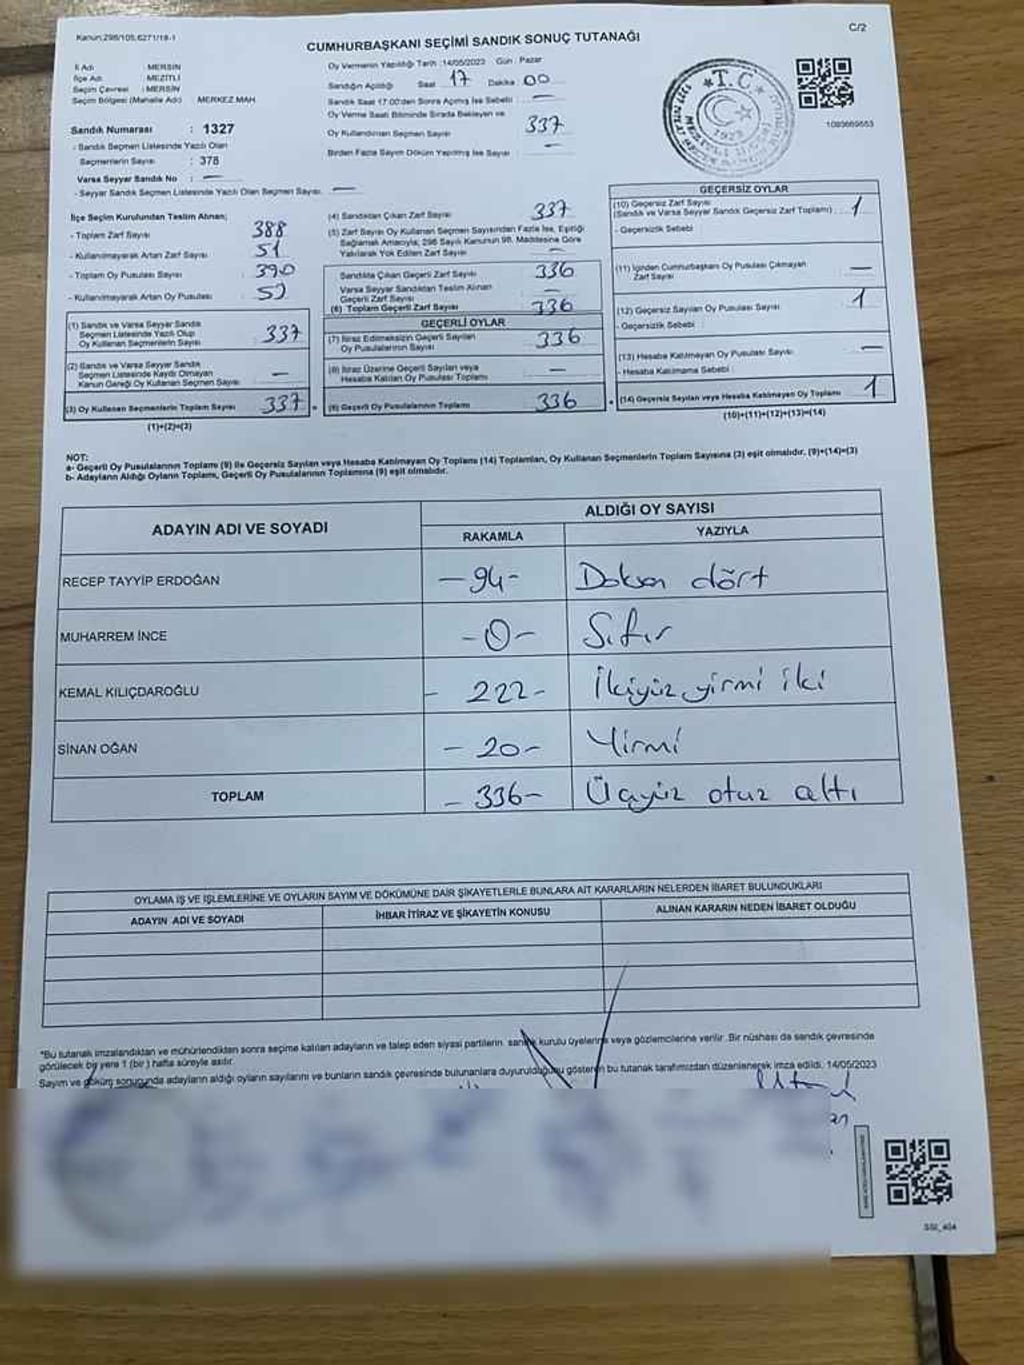 Kanun:298/105,6271/18-1
C/2
CUMHURBAŞKANI SEÇİMİ SANDIK SONUÇ TUTANAĞI
İl Adı : MERSİN
İlçe Adı : MEZİTLİ
Seçim Çevresi : MERSİN
Seçim Bölgesi (Mahalle Adı) : MERKEZ MAH
Sandık Numarası : 1327
- Sandık Seçmen Listesinde Yazılı Olan
Seçmenlerin Sayısı : 378
Varsa Seyyar Sandık No : —
- Seyyar Sandık Seçmen Listesinde Yazılı Olan Seçmen Sayısı —
Oy Vermenin Yapıldığı Tarih :14/05/2023 Gün : Pazar
Sandığın Açıldığı Saat 17 Dakika 00
Sandık Saat 17:00'den Sonra Açılmış İse Sebebi : —
Oy Verme Saati Bitiminde Sırada Bekleyen ve
Oy Kullandırılan Seçmen Sayısı 337
Birden Fazla Sayım Döküm Yapılmış İse Sayısı : —
T.C.
1923
1093669653
İlçe Seçim Kurulundan Teslim Alınan;
- Toplam Zarf Sayısı 388
- Kullanılmayarak Artan Zarf Sayısı 51
- Toplam Oy Pusulası Sayısı 390
- Kullanılmayarak Artan Oy Pusulası
(1) Sandık ve Varsa Seyyar Sandık
Seçmen Listesinde Yazılı Olup
Oy Kullanan Seçmenlerin Sayısı 337
(2) Sandık ve Varsa Seyyar Sandık
Seçmen Listesinde Kaydı Olmayan
Kanun Gereği Oy Kullanan Seçmen Sayısı —
(3) Oy Kullanan Seçmenlerin Toplam Sayısı 337
(1)+(2)=(3)
(4) Sandıktan Çıkan Zarf Sayısı 337
(5) Zarf Sayısı Oy Kullanan Seçmen Sayısından Fazla İse, Eşitliği
Sağlamak Amacıyla; 298 Sayılı Kanunun 98. Maddesine Göre
Yakılarak Yok Edilen Zarf Sayısı —
Sandıkta Çıkan Geçerli Zarf Sayısı 336
Varsa Seyyar Sandıktan Teslim Alınan
Geçerli Zarf Sayısı —
(6) Toplam Geçerli Zarf Sayısı 336
GEÇERLİ OYLAR
(7) İtiraz Edilmeksizin Geçerli Sayılan
Oy Pusulalarının Sayısı 336
(8) İtiraz Üzerine Geçerli Sayılan veya
Hesaba Katılan Oy Pusulası Toplamı —
(9) Geçerli Oy Pusulalarının Toplamı 336
GEÇERSİZ OYLAR
(10) Geçersiz Zarf Sayısı
(Sandık ve Varsa Seyyar Sandık Geçersiz Zarf Toplamı) 1
- Geçersizlik Sebebi
(11) İçinden Cumhurbaşkanı Oy Pusulası Çıkmayan
Zarf Sayısı —
(12) Geçersiz Sayılan Oy Pusulası Sayısı 1
- Geçersizlik Sebebi :
(13) Hesaba Katılmayan Oy Pusulası Sayısı —
- Hesaba Katılmama Sebebi :
(14) Geçersiz Sayılan veya Hesaba Katılmayan Oy Toplamı 1
(10)+(11)+(12)+(13)=(14)
NOT:
a- Geçerli Oy Pusulalarının Toplamı (9) ile Geçersiz Sayılan veya Hesaba Katılmayan Oy Toplamı (14) Toplamları, Oy Kullanan Seçmenlerin Toplam Sayısına (3) eşit olmalıdır. (9)+(14)=(3)
b- Adayların Aldığı Oyların Toplamı, Geçerli Oy Pusulalarının Toplamına (9) eşit olmalıdır.
ADAYIN ADI VE SOYADI
ALDIĞI OY SAYISI
RAKAMLA YAZIYLA
RECEP TAYYİP ERDOĞAN -94- Doksan dört
MUHARREM İNCE -0- Sıfır
KEMAL KILIÇDAROĞLU - 222- İkiyüz yirmi iki
SİNAN OĞAN - 20- Yirmi
TOPLAM - 336- Üçyüz otuz altı
OYLAMA İŞ VE İŞLEMLERİNE VE OYLARIN SAYIM VE DÖKÜMÜNE DAİR ŞİKAYETLERLE BUNLARA AİT KARARLARIN NELERDEN İBARET BULUNDUKLARI
ADAYIN ADI VE SOYADI İHBAR İTİRAZ VE ŞİKAYETİN KONUSU ALINAN KARARIN NEDEN İBARET OLDUĞU
*Bu tutanak imzalandıktan ve mühürlendikten sonra seçime katılan adayların ve talep eden siyasi partilerin sandık kurulu üyelerine veya gözlemcilerine verilir. Bir nüshası da sandık çevresinde
görülecek bir yere 1 (bir) hafta süreyle asılır.
Sayım ve döküm sonucunda adayların aldığı oyların sayılarını ve bunların sandık çevresinde bulunanlara duyurulduğunu gösteren bu tutanak tarafımızdan düzenlenerek imza edildi. 14/05/2023
SSI_404